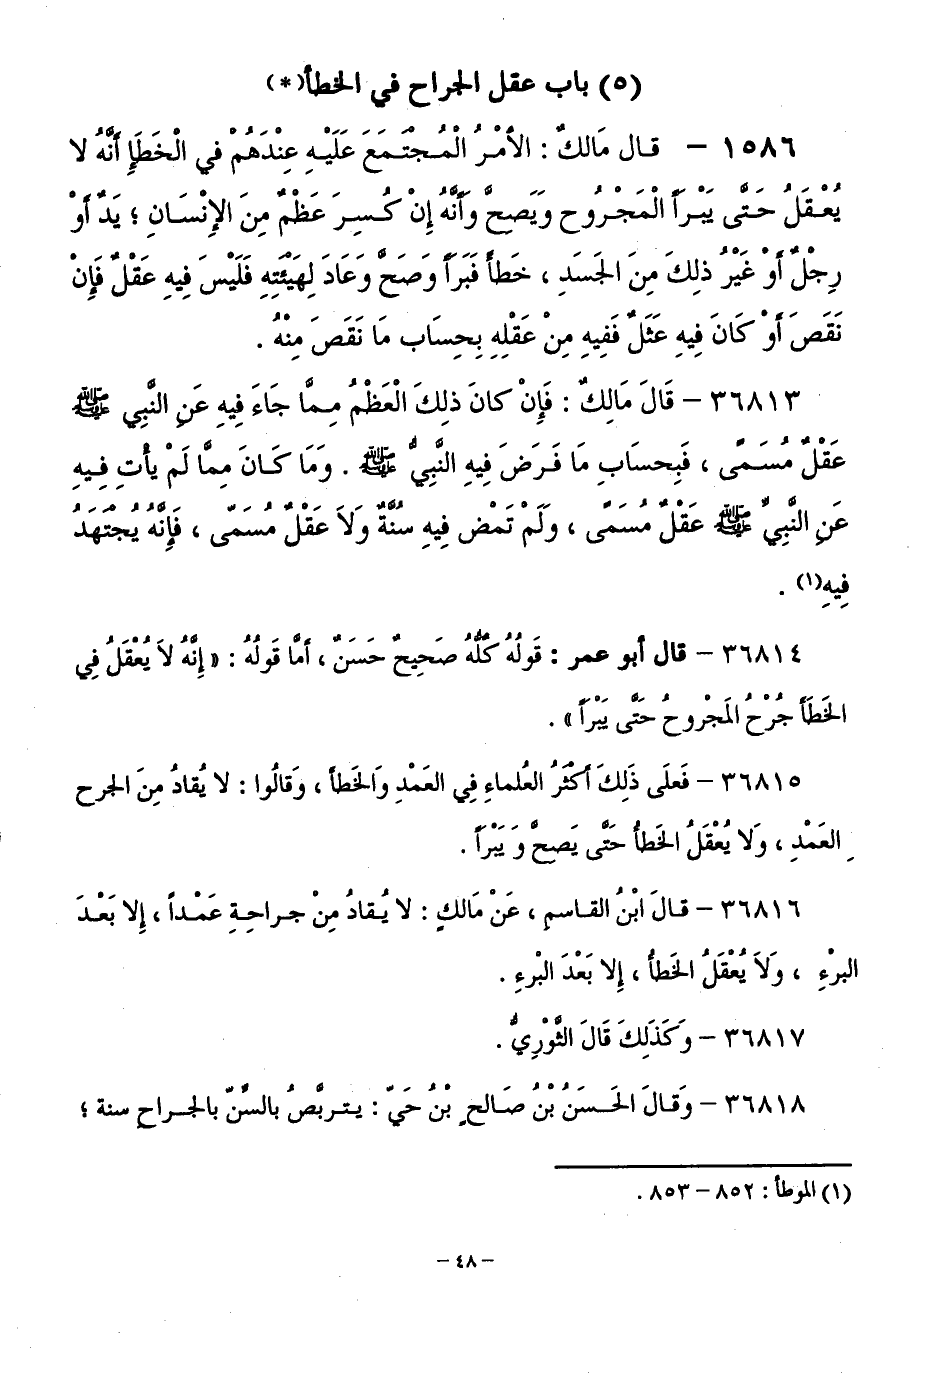 (٥) باب عقل الجراح في الخطأ(*)
١٥٨٦ – قال مَالكٌ : الأَمْرُ الْمُجْتَمَعَ عَلَيْهِ عِنْدَهُمْ في الْخَطَإِ أَنَّهُ لا
يُعْقَلُ حَتَّى يَبْرَأَ الْمَجْرُوح وَيَصِحَّ وَأَنَّهُ إِن كُسِرَ عَظْمٌ مِنَ الإِنْسَانِ ؛ يَدٌ أَوْ
رِجْلٌ أَوْ غَيْرُ ذلِكَ مِنَ الجَسَدِ ، خطَأً فَبَرَأَ وَصَحَّ وَعَادَ لِهَيْئَتِهِ فَلَيْسَ فِيهِ عَقْلٌ فَإِن
نَقَصَ أَوْ كَانَ فِيهِ عَثَلٌ فَفِيهِ مِنْ عَقْلِهِ بِحِسَاب مَا نَقَصَ مِنْهُ .
٣٦٨١٣ – قَالَ مَالِكٌ : فَإِنْ كانَ ذلِكَ الْعَظْمُ مِمَّا جَاءَ فِيهِ عَنِ النَّبِي ﷺ
عَقْلٌ مُسَمًّى ، فَبِحسَابِ مَا فَرَضَ فِيهِ النَّبِيُّ ﷺ . وَمَا كَانَ مِمَّا لَمْ يأْتِ فِيهِ
عَنِ النَّبِيِّ ﷺ عَقْلٌ مُسَمًّى ، وَلَمْ تَمْضِ فِيهِ سُنَّةٌ وَلاَ عَقْلٌ مُسَمًّى ، فَإِنَّهُ يُجْتَهَدُ
فِيهِ(١) .
٣٦٨١٤ – قال أبو عمر : قَولُهُ كُلُّهُ صَحِيحٌ حَسَنٌ ، أَمَّا قَولُهُ : « إِنَّهُ لاَ يُعْقَلُ فِي
الخَطَأَ جُرْحُ المَجْرُوحُ حَتَّى يَبْرَأَ » .
٣٦٨١٥ – فَعلَى ذَلِكَ أَكْثَرُ العُلماءِ فِي العَمْدِ وَالخَطأ ، وَقالُوا : لا يُقادُ مِنَ الجرح
العَمْدِ ، وَلا يُعْقَلُ الخَطأُ حَتَّى يَصحَّ وَيَبْرَأَ .
٣٦٨١٦ – قالَ ابْنُ القاسمِ ، عَنْ مَالكٍ : لا يُقادُ مِنْ جراحةٍ عَمْداً ، إلا بَعْدَ
البرْءِ ، وَلاَ يُعْقَلُ الخَطأُ ، إلا بَعْدَ البْرءِ .
٣٦٨١٧ – وَكَذَلِكَ قَالَ الثَّوْرِيُّ .
٣٦٨١٨ – وَقَالَ الحَسَنُ بْنُ صَالحٍ بْنُ حَيّ : يتربَّصُ بالسنّ بالجراحِ سنة ؛
(١) الموطأ : ٨٥٢ – ٨٥٣ .
– ٤٨ –